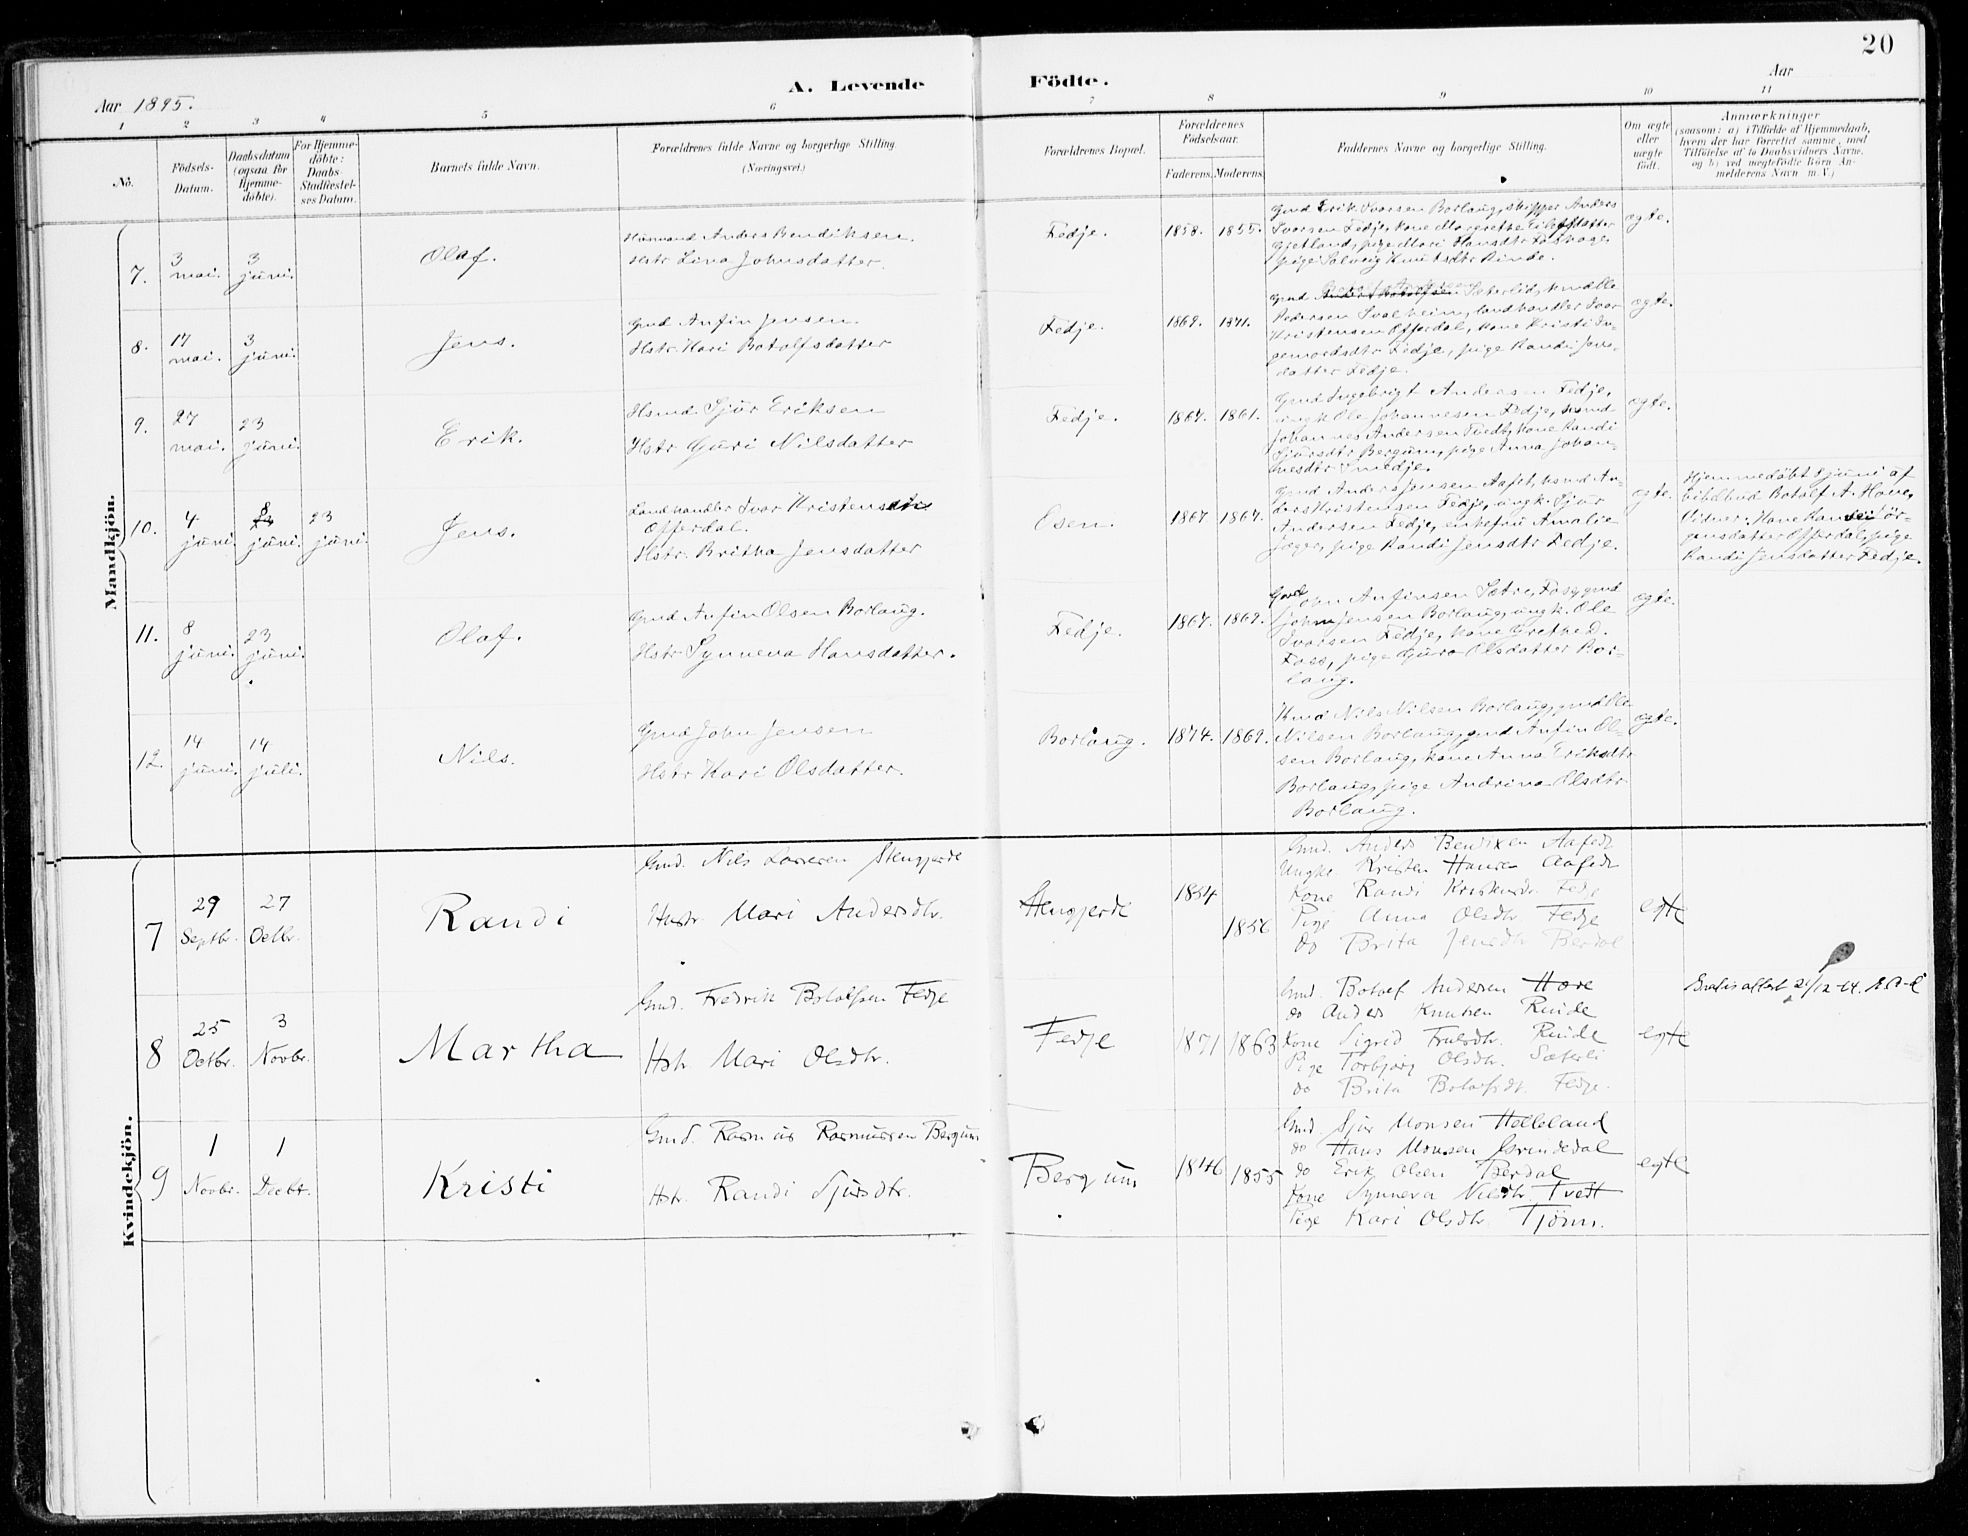 20
A. Levende Födte.
Aar 1895.
Aar
1 2 3 4 5 6 7 8 9 10 11
No.
Födsels-Datum.
Daabsdatum (ogsaa for Hjemmedöbte).
For Hjemmedöbte: Daabs-Stadfæstelses Datum.
Barnets fulde Navn.
Forældrenes fulde Navne og borgerlige Stilling. (Næringsvei.)
Forældrenes Bopæl.
Forældrenes Födselsaar.
Faderens. Moderens.
Faddernes Navne og borgerlige Stilling.
Om ægte eller uægte födt.
Anmærkninger
(saasom: a) i Tilfælde af Hjemmedaab,
hvem der har forrettet samme, med
Tilföielse af to Daabsvidners Navne,
og b) ved uægtefödte Börn Anmelderens Navn m. V.)
Mandkjön.
7. 3 mai. 3 juni. Olaf.
Husmand Anders Bendiksen.
Hstr Lina Johnsdatter.
Fedje. 1858. 1855.
Gmd Erik Ivarsen Borlaug, skipper Anders
Ivarsen Fedje, kone Margrethe
Gjetland, pige Mari Hansdtr
pige Solveig Knutsdtr Rinde.
ægte.
8. 17 mai. 3 juni. Jens.
Gmd Anfin Jensen.
Hstr. Kari Botolfsdatter
Fedje. 1869. 1871.
Gmd Sæterlid,
Pedersen Svalheim, landhandler Ivar
Kristensen Offerdal, kone Kristi In-
gemodsdtr Fedje, pige Randi Jens-
datter Fedje.
ægte.
9. 27 mai. 23 juni. Erik.
Hsmd. Sjur Eriksen
Hstr Guri Nilsdatter
Fedje. 1867. 1861.
Gmd Ingebrigt Andersen Fedje,
ungk Ole Johannesen Fedje, hsmd
Johannes Andersen Tvedt, kone Randi
Sjursdtr Bergum, pige Anna Johan-
nesdtr Smedje.
ægte.
10. 4 juni. 8 juni. 23 juni. Jens.
Landhandler Ivar Kristensen
Offerdal.
Hstr. Britha Jensdatter
Osen. 1867 1867.
Gmd Anders Jensen Aafet, hsmd An-
ders Kristensen Fedje, ungk. Sjur
Andersen Fedje, enkefru Amalie
Jæger, pige Randi Jensdtr Fedje.
ægte.
Hjemmedöbt 8 juni af
bibelbud Botolf A. Hove.
Vidner: Kone Randi Jör-
gensdatter Offerdal, pige
Randi Jensdatter Fedje.
11. 8 juni. 23 juni. Olaf.
Gmd Anfin Olsen Borlaug.
Hstr Synneva Hansdatter.
Fedje. 1867. 1869.
Gmd John Anfinsen Sætre, gmd
John Jensen Borlaug, ungk. Ole
Ivarsen Fedje, kone Grethe D.
Foss, pige Guro Olsdatter Bor-
laug.
ægte.
12. 14 juni. 14 juli. Nils.
Gmd John Jensen
Hstr Kari Olsdatter.
Borlaug. 1874. 1869.
Kmd Nils Nilsen Borlaug, gmd Ole
Nilsen Borlaug, gmd Anfin Ol-
sen Borlaug, kone Anna Eriksdtr
Borlaug, pige Andrina Olsdtr
Borlaug.
ægte.
Kvindekjön.
7 29 Septbr. 27 Octbr. Randi
Gmd. Nils Larsen Stengjerde
Hustr Mari Andersdtr.
Stengjerde 1854 1856
Gmd. Anders Bendixen Aafedt
Ungkr. Kristen Hansen Aafedt
Kone Randi Kristensdr. Fedje
Pige Anna Olsdtr. Fedje
do Brita Jensdtr Berdal
egte
8 25 Octbr. 3 Novbr. Martha
Gmd. Fredrik Botolfsen Fedje
Hstr. Mari Olsdtr.
Fedje 1871 1863
Gmd. Botolf Andersen Hove
do Anders Knutsen Rinde
Kone Sigrid Trulsdtr. Rinde
Pige Torbjørg Olsdtr. Sæterli
do Brita Botolfsdt. Fedje.
egte
Gratis attest 21/12-64.
9 1 Novbr. 1 Decbr. Kristi
Gmd. Rasmus Rasmussen Bergum
Hstr. Randi Sjursdtr.
Bergum 1846 1855
Gmd. Sjur Monsen Helleland
do Hans Monsen Grindedal
do Erik Olsen Berdal
Kone Synneva Nilsdtr. Tvedt
Pige Kari Olsdtr. Tjønn.
egte